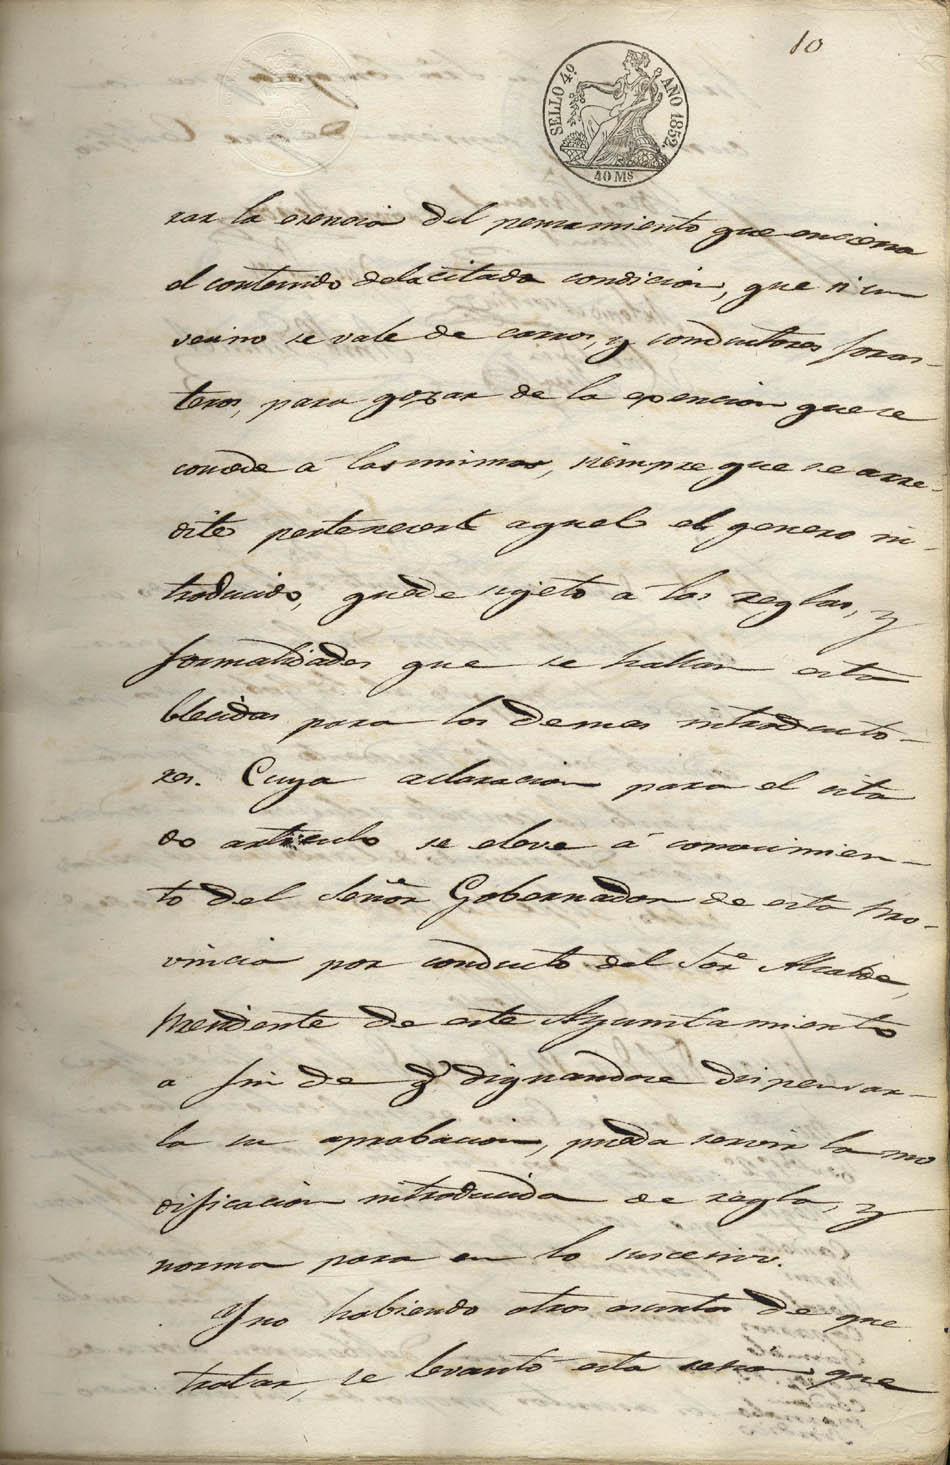 10
SELLO 4º. AÑO 1852.
40 Ms
rar la esencia del pensamiento que encierra
el contenido dela citada condicion, que si un
vecino se vale de carros, y conductores foras-
teros, para gozar de la esencion que se
concede á los mimos, siempre que se acre-
dite pertenecerle aquel el genero in-
troducido, quede sujeto á las reglas, y
formalidades que se hallan esta
blecidas para los demas introducto-
res. Cuya aclaracion para el cita
do articulo se eleve á conocimien-
to del Señor Gobernador de esta Pro-
vincia por conducto del Sor. Alcalde,
Presidente de este Ayuntamiento
a fin de q dignandose dispensar-
la su aprobacion, pueda servir la mo
dificacion introducida de regla, y
norma para en lo sucesivo.
Y no habiendo otros asuntos de que
tratar, se levantó esta sesion que